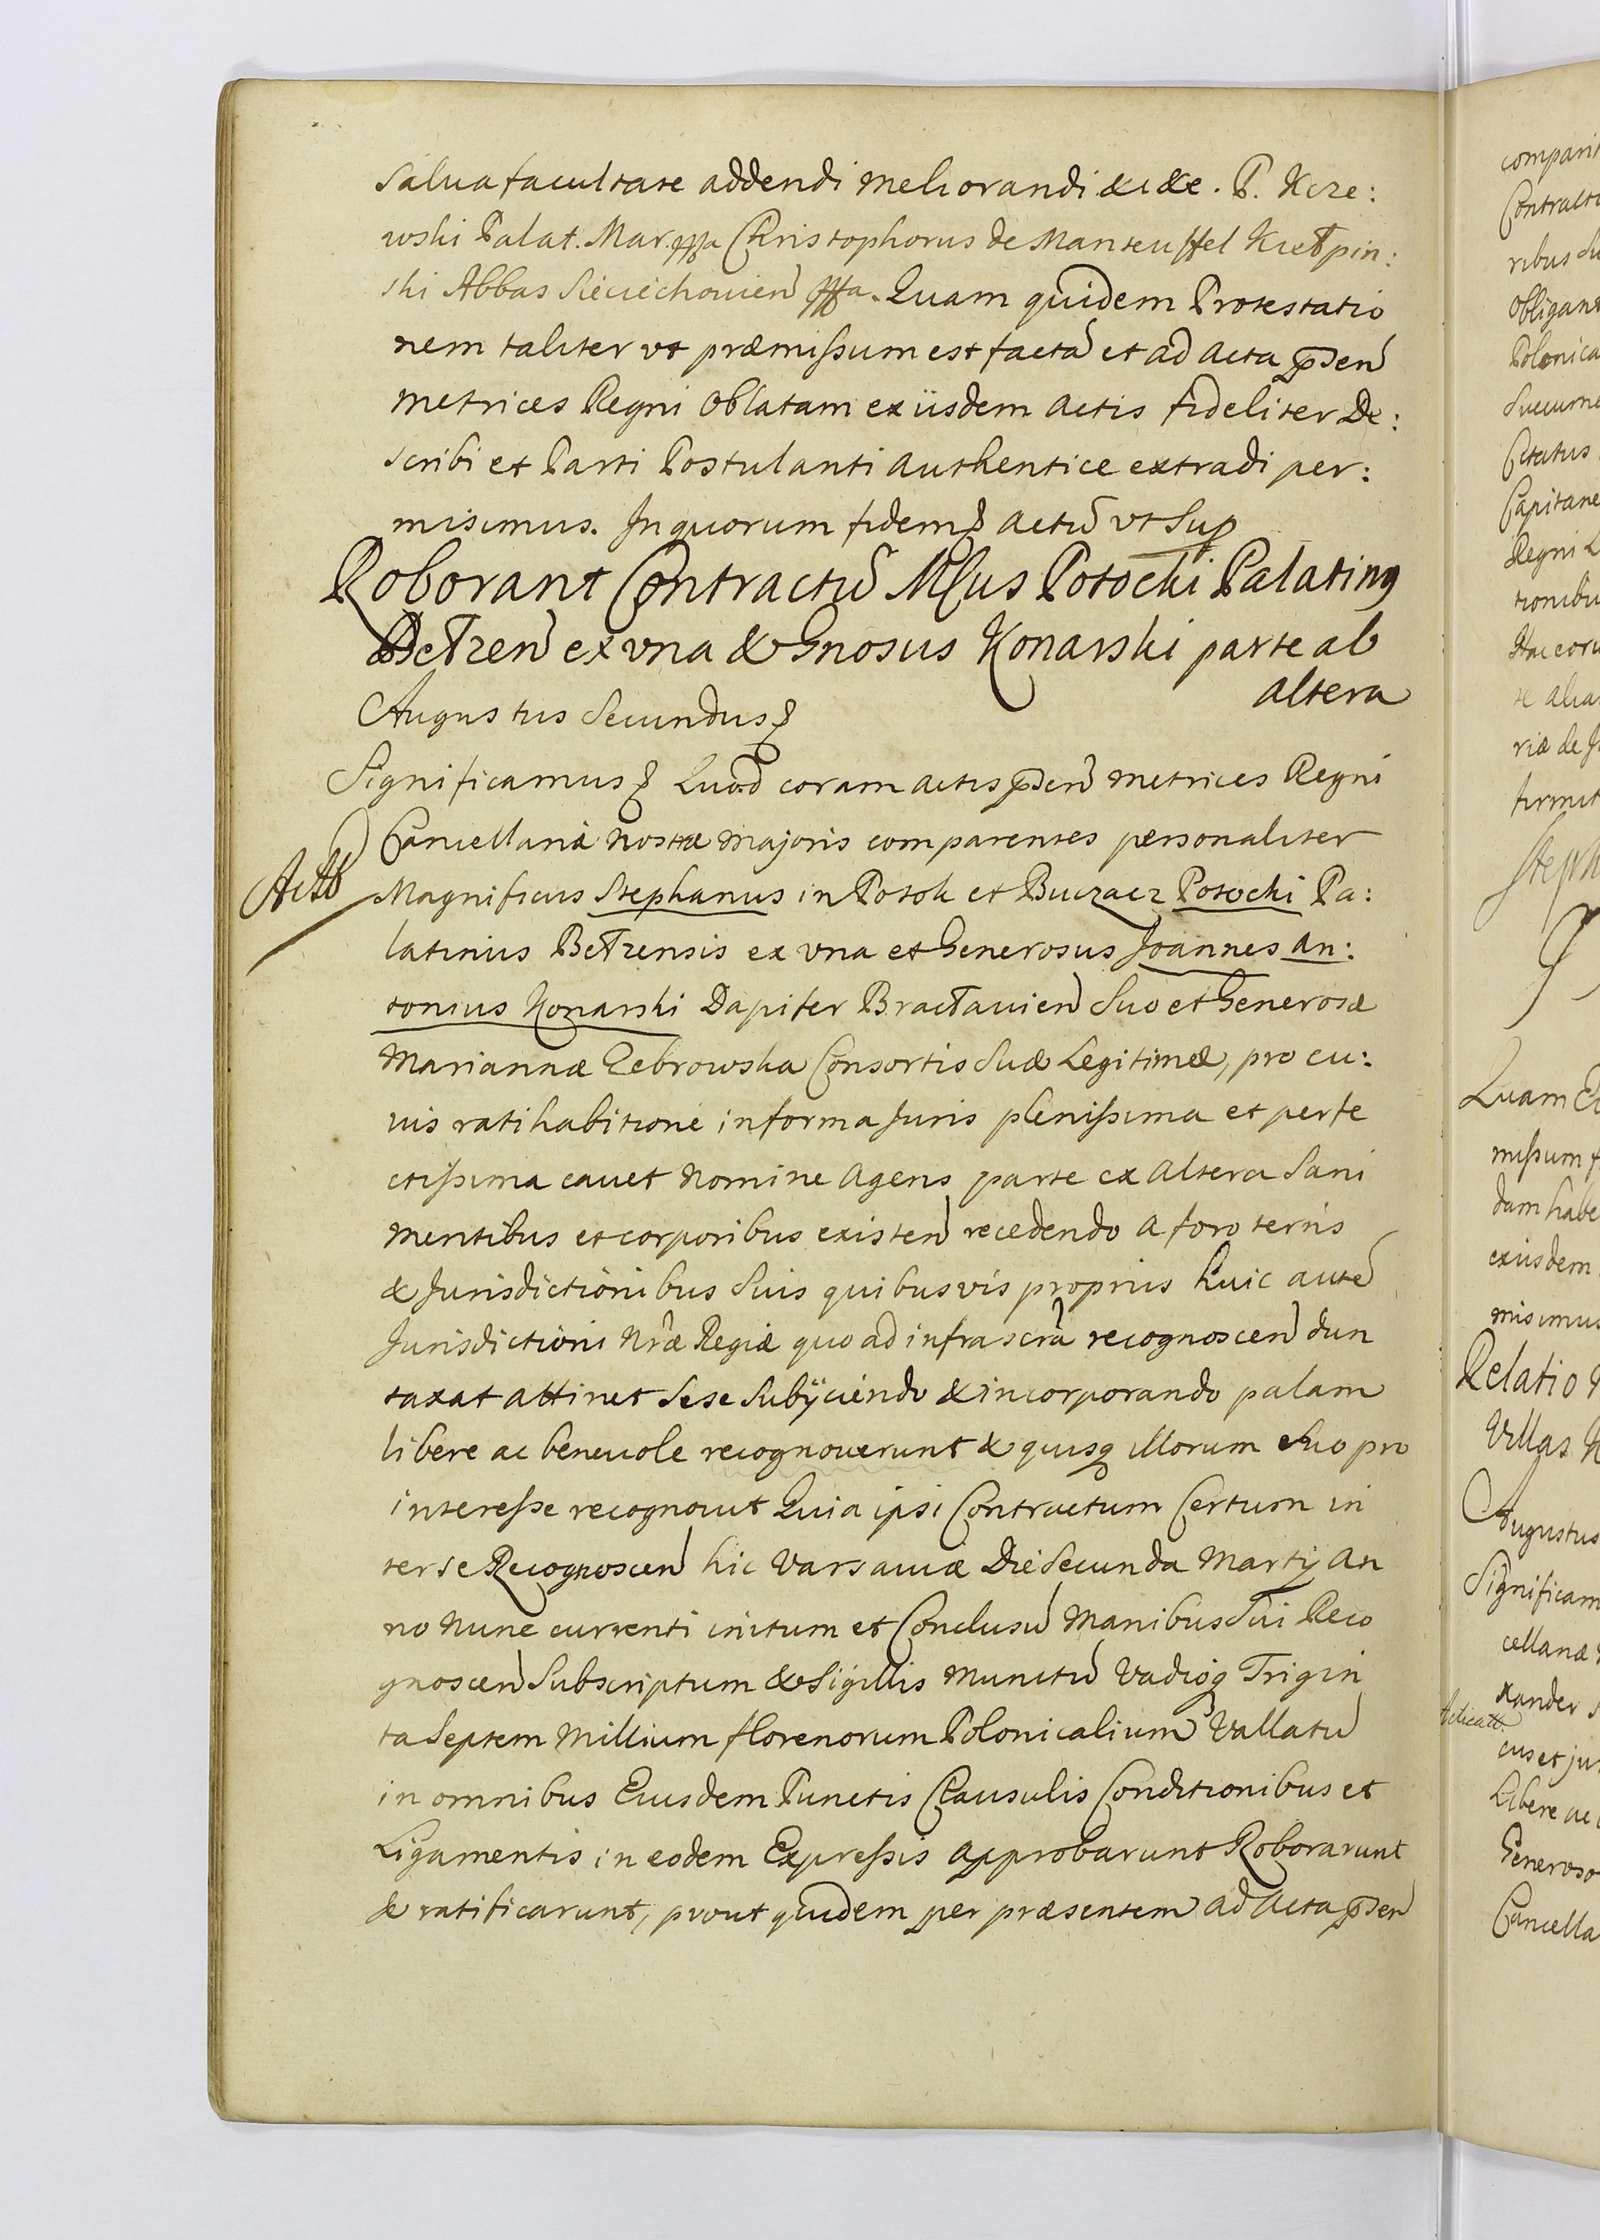 salua facultate addendi meliorandi &c &c. P. Kcze:
wski Palat. Mar. mppa Christophorus de Manteuffel Kiełpin:
ski Abbas Sieciechouien mppa. Quam quidem Protestatio
nem taliter vt præmissum est factā et ad acta pn̄sen
metrices Regni Oblatam ex iisdem actis fideliter De:
scribi et Parti Postulanti authentice extradi per:
misimus. In quorum fidem Actū vt Sup
Roborant Contractū Mcus Potocki Palatinus
Bełzen ex vna & Gnosus Konarski parte ab
altera
Augustus Secundus
Significamus Quod coram actis pn̄sen metrices Regni
Cancellariæ nostræ majoris comparentes personaliter
Magnificus Stephanus in Potok et Buczacz Potocki Pa:
latinus Bełzensis ex vna et Generosus Joannes An:
tonius Konarski Dapifer Bracłauien Suo et Generosæ
Mariannæ Zebrowska Consortis Suæ Legitimæ, pro cu:
ius ratihabitione in forma Juris plenissima et perfe
ctissima cauet nomine Agens parte ex altera Sani
mentibus et corporibus existen recedendo a foro terris
& Jurisdictionibus Suis quibusvis propriis huic autē
Jurisdictioni Nræ Regiæ quo ad infrascra recognoscen dun
taxat attinet sese subijciendo & incorporando palam
libere ac beneuole recognouerunt & quisq illorum Suo pro
interesse recognouit Quia ipsi Contractum Certum in
ter se Recognoscen hic Varsauiæ Die Secunda Martij An
no nunc currenti initum et Conclusū Manibus Sui Reco
gnoscen Subscriptum & Sigillis munitū Vadioq Trigin
ta Septem Millium florenorum Polonicalium Vallatū
in omnibus Eiusdem Punctis Clausulis Conditionibus et
Ligamentis in eodem Expressis approbarunt Roborarunt
& ratificarunt, prout quidem per præsentem ad Acta pn̄sen
comparit
Contractu
ribus Su
Obligant
Polonica
Capitane
Regni L
tionibu
te alia
riæ de
firmit
Steph
Quam
missum f
dam habe
exiisdem
misimus
Relatio
Villas
Augustus
Significam
cellariæ
xander
cus et ju
Libere ac
Generoso
Cancella